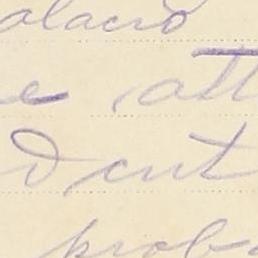 alacio
e , att
D cut
prob